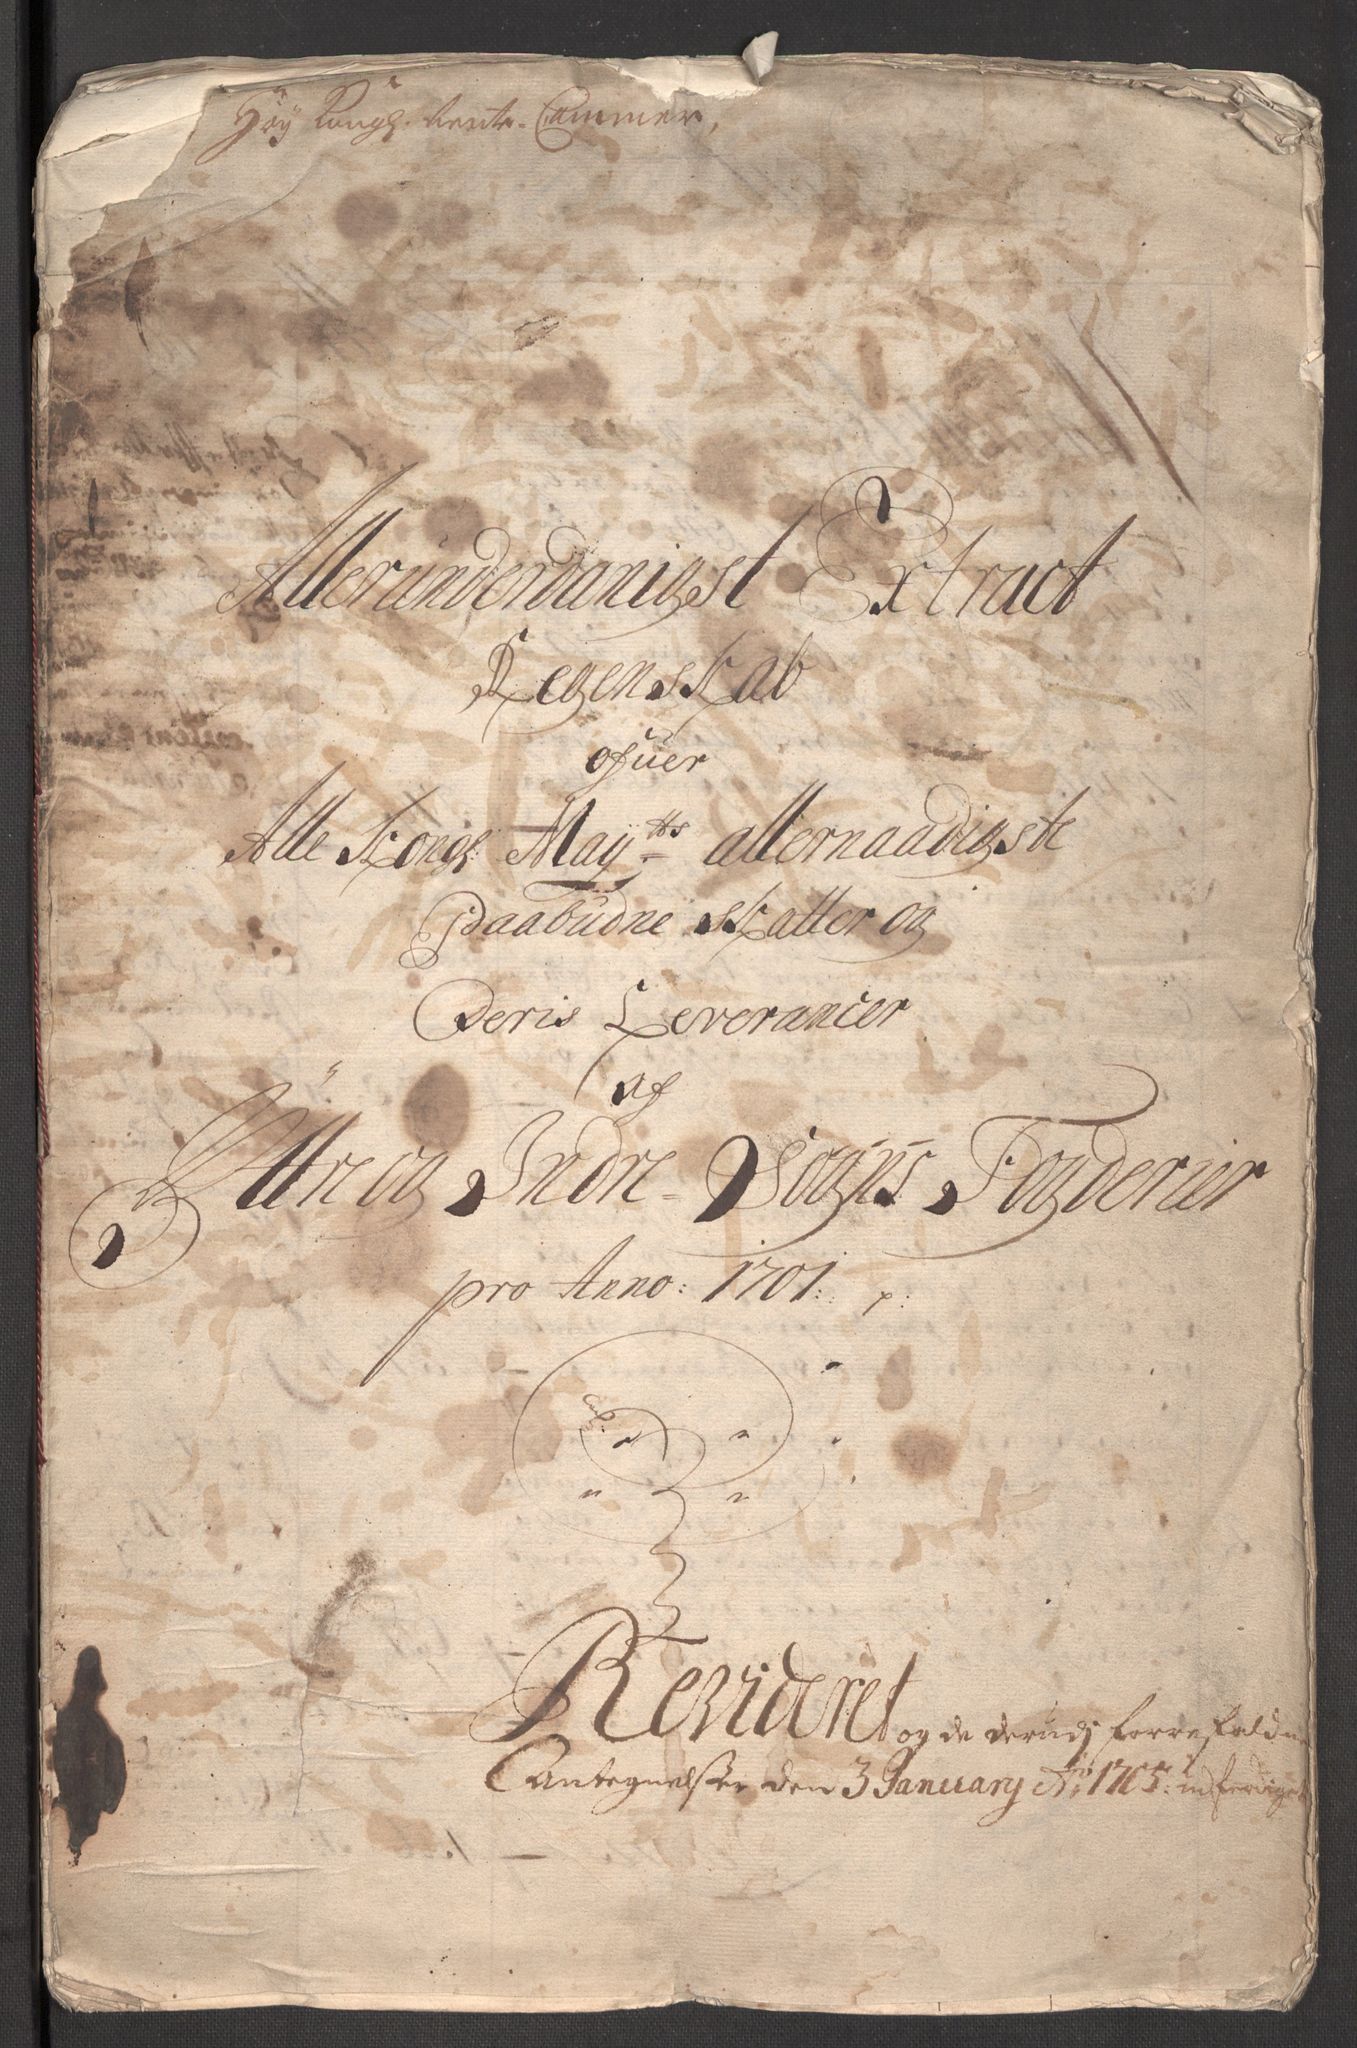 Höy Kongl. Rente-Cammer,
Allerunderdanigst Extract
Regenskab
ofuer
Alle Kongl: Mayᵗᵗˢ allernaadigste
Paabudne skatter og
Deris Leverancer
af
Yttre og Indre-Sogns Fogderier
pro Anno: 1701: p:
Revideret og de derudj forrefaldne
Antegnelser den 3 January Aº 1705: udferdiget